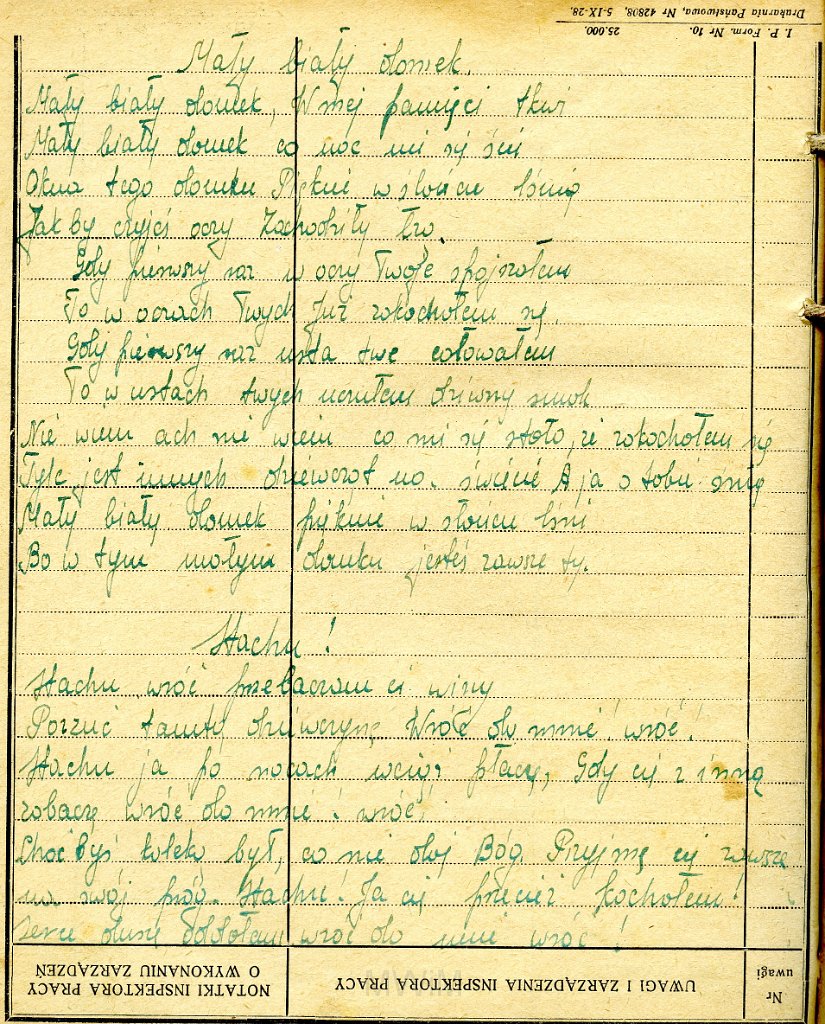 Drukarnia Państwowa, Nr 42808, 5-IX-28.
I. P. Form. Nr 10. 25.000.
Mały biały domek.
Mały biały domek, W mej pamięci tkwi
Mały biały domek co noc mi się śni
Okna tego domku Pięknie w słońcu lśnią
Jak by czyjeś oczy Zachodziły łzą.
Gdy pierwszy raz w oczy Twoje spojrzałem
To w oczach Twych Już zakochałem się,
Gdy pierwszy raz usta twe całowałem
To w ustach twych uczułem dziwny smak
Nie wiem ach nie wiem co mi się stało, że zakochałem się
Tyle jest innych dziewcząt na świecie A ja o tobie śnię
Mały biały domek pięknie w słońcu lśni
Bo w tym małym domku jesteś zawsze ty.
Stachu!
Stachu wróć przebaczam ci winy
Porzuć tamtą dziewczynę Wróć do mnie! wróć!
Stachu ja po nocach wciąż płaczę, Gdy cię z inną
zobaczę wróć do mnie! wróć!
Choć byś kaleką był, co nie daj Bóg. Przyjmę cię zawsze
na swój próg. Stachu! Ja cię przecież kochałam!
serce duszę oddałam wróć do mnie wróć!
NOTATKI INSPEKTORA PRACY O WYKONANIU ZARZĄDZEŃ
UWAGI I ZARZĄDZENIA INSPEKTORA PRACY
Nr uwagi